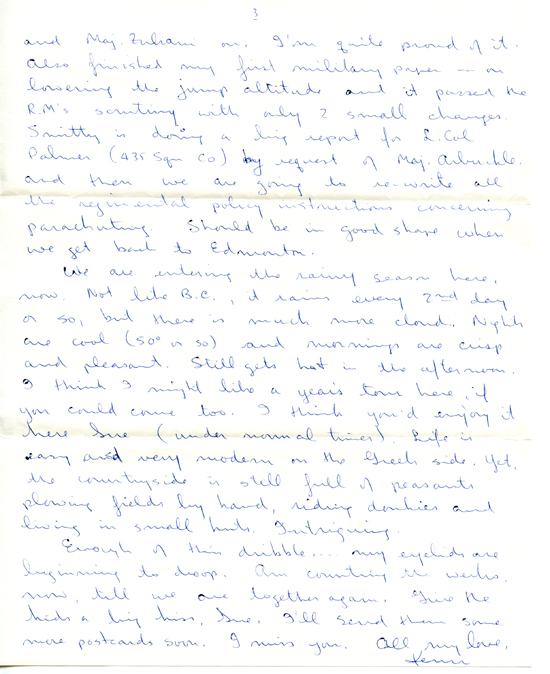 3
and Maj. Zuliani on. I'm quite proud of it.
Also finished my first military paper — on
lowering the jump altitude and it passed the
R.M's scrutiny with only 2 small changes.
Smitty is doing a big report for L. Col
Palmer (435 Sqn CO) by request of Maj. Arbuckle.
and then we are going to re-write all
the regimental policy instructions concerning
parachuting. Should be in good shape when
we get back to Edmonton.
We are entering the rainy season here,
now. Not like B.C., it rains every 2nd day
or so, but there is much more cloud. Nights
are cool (50° or so) and mornings are crisp
and pleasant. Still gets hot in the afternoon.
I think I might like a year's tour here, if
you could come too. I think you'd enjoy it
here Sue (under normal times). Life is
easy and very modern on the Greek side. Yet,
the countryside is still full of peasants
plowing fields by hand, riding donkies and
living in small huts. Intriguing.
Enough of this dribble.... my eyelids are
beginning to droop. Am counting the weeks,
now, till we are together again. Give the
kids a big kiss, Sue. I'll send them some
more postcards soon. I miss you. All my love,